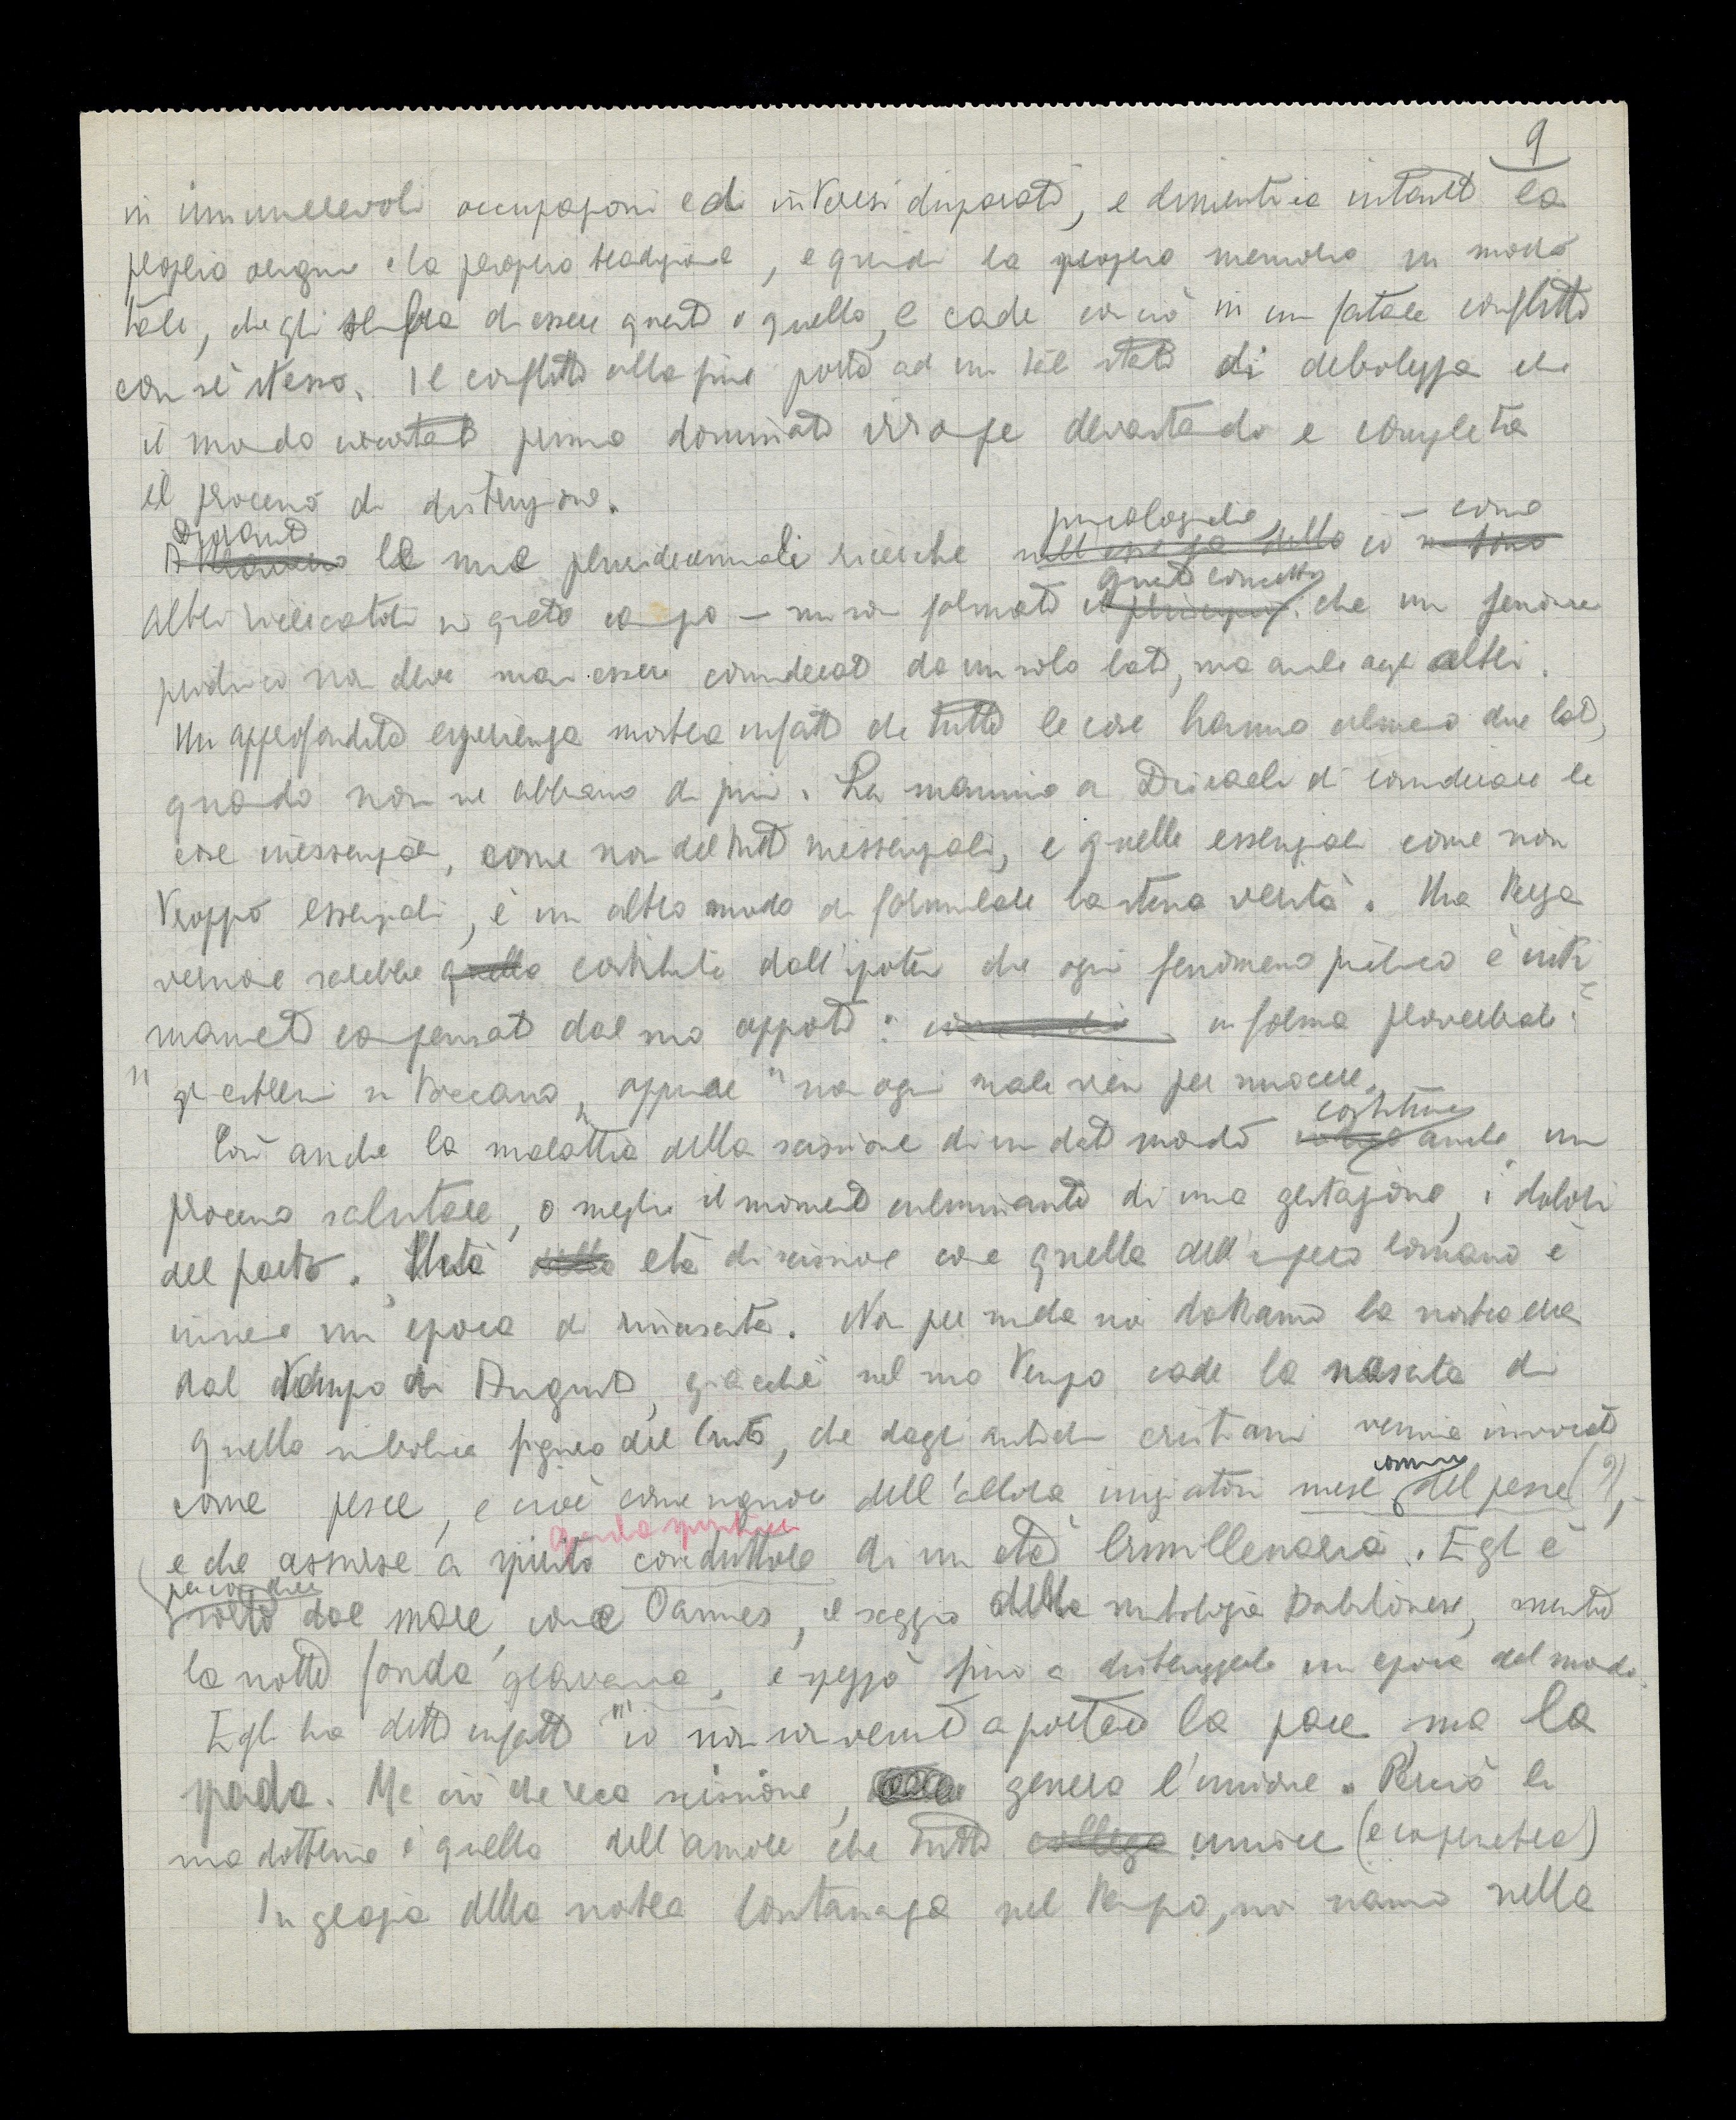 9
in innumerevoli occupazioni e di interessi disparati, e dimentica intanto la
propria origine e la propria tradizione, e quindi la propria memoria in modo
tale, che gli sembra di essere questo o quello, e cade con ciò in un fatale conflitto
con sè stesso. Il conflitto alla fine porta ad un tal stato di debolezza che
il mondo prima dominato irrompe devastando e completa
il processo di distruzione.
Durante psicologiche – come
le mie pluridecennali ricerche nell'essenza della io
questo concetto
altri ricercatori in questo campo – mi son formato il principio che un fenomeno
psichico non deve mai essere considerato da un solo lato, ma anche dagli altri.
Un approfondita esperienza mostra infatti che tutte le cose hanno almeno due lati,
quando non ne abbiano di più. La massima di Disraeli di considerare le
cose inessenziali, come non del tutto inessenziali, e quelle essenziali come non
troppo essenziali, è un altro modo di formulare la stessa verità. Una terza
versione sarebbe quella costituita dall'ipotesi che ogni fenomeno psichico è inti
mamente compensato dal suo opposto: in forma proverbiale:
"gli estremi si toccano", oppure "non ogni male vien per nuocere.
costituisce
Così anche la malattia della scissione di un dato mondo anche un
processo salutare, o meglio il momento culminante di una gestazione, i dolori
del parto. Una età di scissione come quella dell'impero romano è
insieme un epoca di rinascita. Non per nulla noi datiamo la nostra era
dal tempo di Augusto, giacchè nel suo tempo cade la nascita di
quella simbolica figura del Cristo, che dagli antichi cristiani veniva invocato
comune
come pesce, e cioè come signore dell'allora iniziatosi mese del pesce (?),
guida spirituale
e che assurse a spirito conduttore di un età bimillenaria. Egli è
per così dire
sorto dal mare, come Oannes, il saggio della mitologia Babilonese, mentre
la notte fonda gravava, e spezzò fino a distruggerla un epoca del mondo.
Egli ha detto infatti "io non son venuto a portare la pace, ma la
spada. Ma ciò che reca scissione, genera l'unione. Perciò la
sua dottrina è quella dell'amore che tutto collega unisce (e compenetra)
In grazia della nostra lontananza nel tempo, noi siamo nella